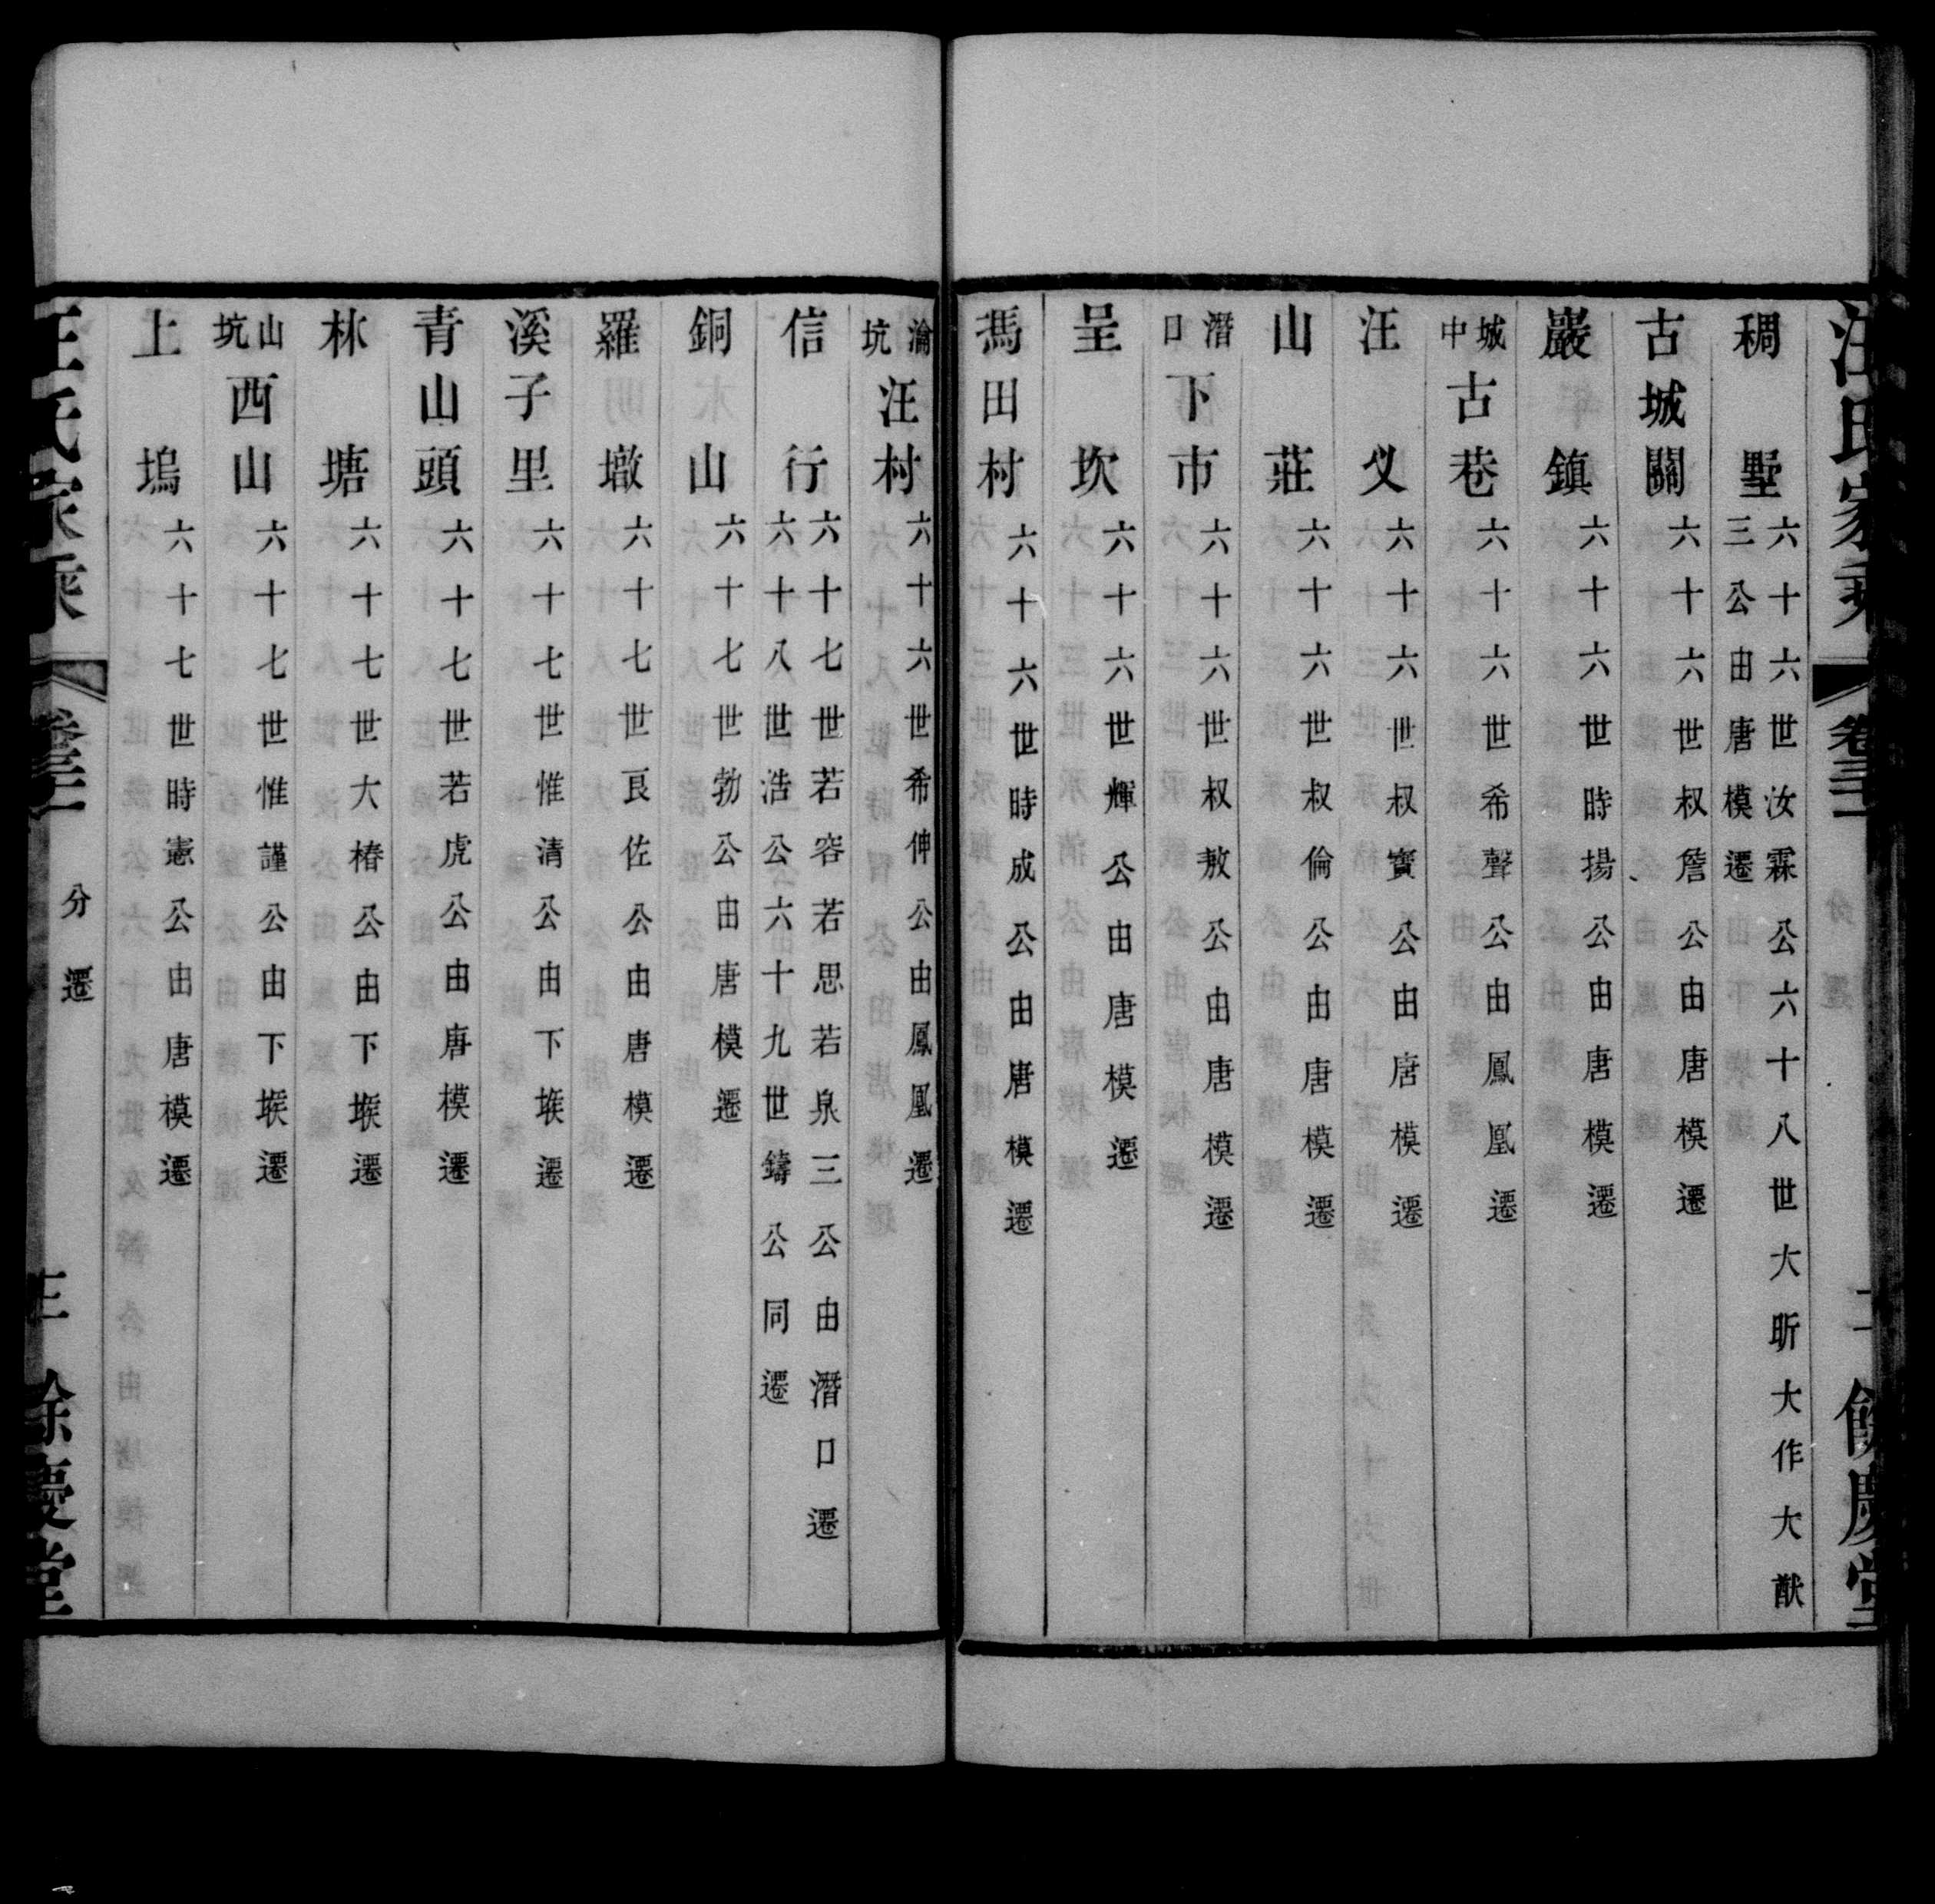 汪氏家乘 卷三 二 餘慶堂
稠墅 六十六世汝霖公六十八世大昕大作大猷三公由唐模遷
古城關 六十六世叔詹公由唐模遷
巖鎮 六十六世時揚公由唐模遷
城中 古巷 六十六世希聲公由鳳凰遷
汪义 六十六世叔寶公由唐模遷
山莊 六十六世叔倫公由唐模遷
潛口 下市 六十六世叔敖公由唐模遷
呈坎 六十六世輝公由唐模遷
馮田村 六十六世時成公由唐模遷
瀹坑 汪村 六十六世希伸公由鳳凰遷
信行 六十七世若容若思若泉三公由潛口遷
六十八世浩公六十九世鑄公同遷
銅山 六十七世勃公由唐模遷
羅墩 六十七世良佐公由唐模遷
溪子里 六十七世惟清公由下堠遷
青山頭 六十七世若虎公由唐模遷
林塘 六十七世大椿公由下堠遷
山坑 西山 六十七世惟謹公由下堠遷
上塢 六十七世時憲公由唐模遷
汪氏家乘 卷三 分遷 三 餘慶堂